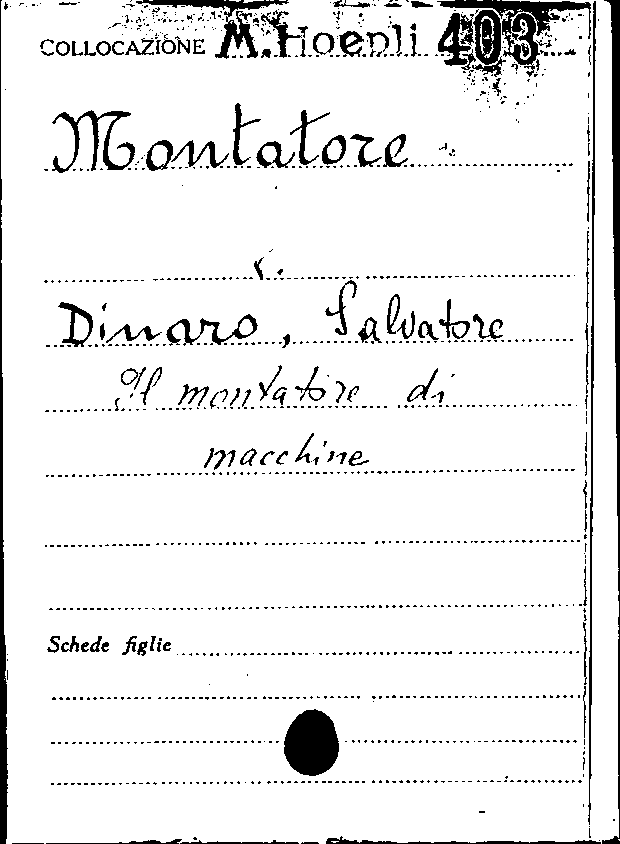 COLLOCAZIONE M. Hoepli 403
Montatore
v.
Dinaro, Salvatore
Il montatore di
macchine
Schede figlie